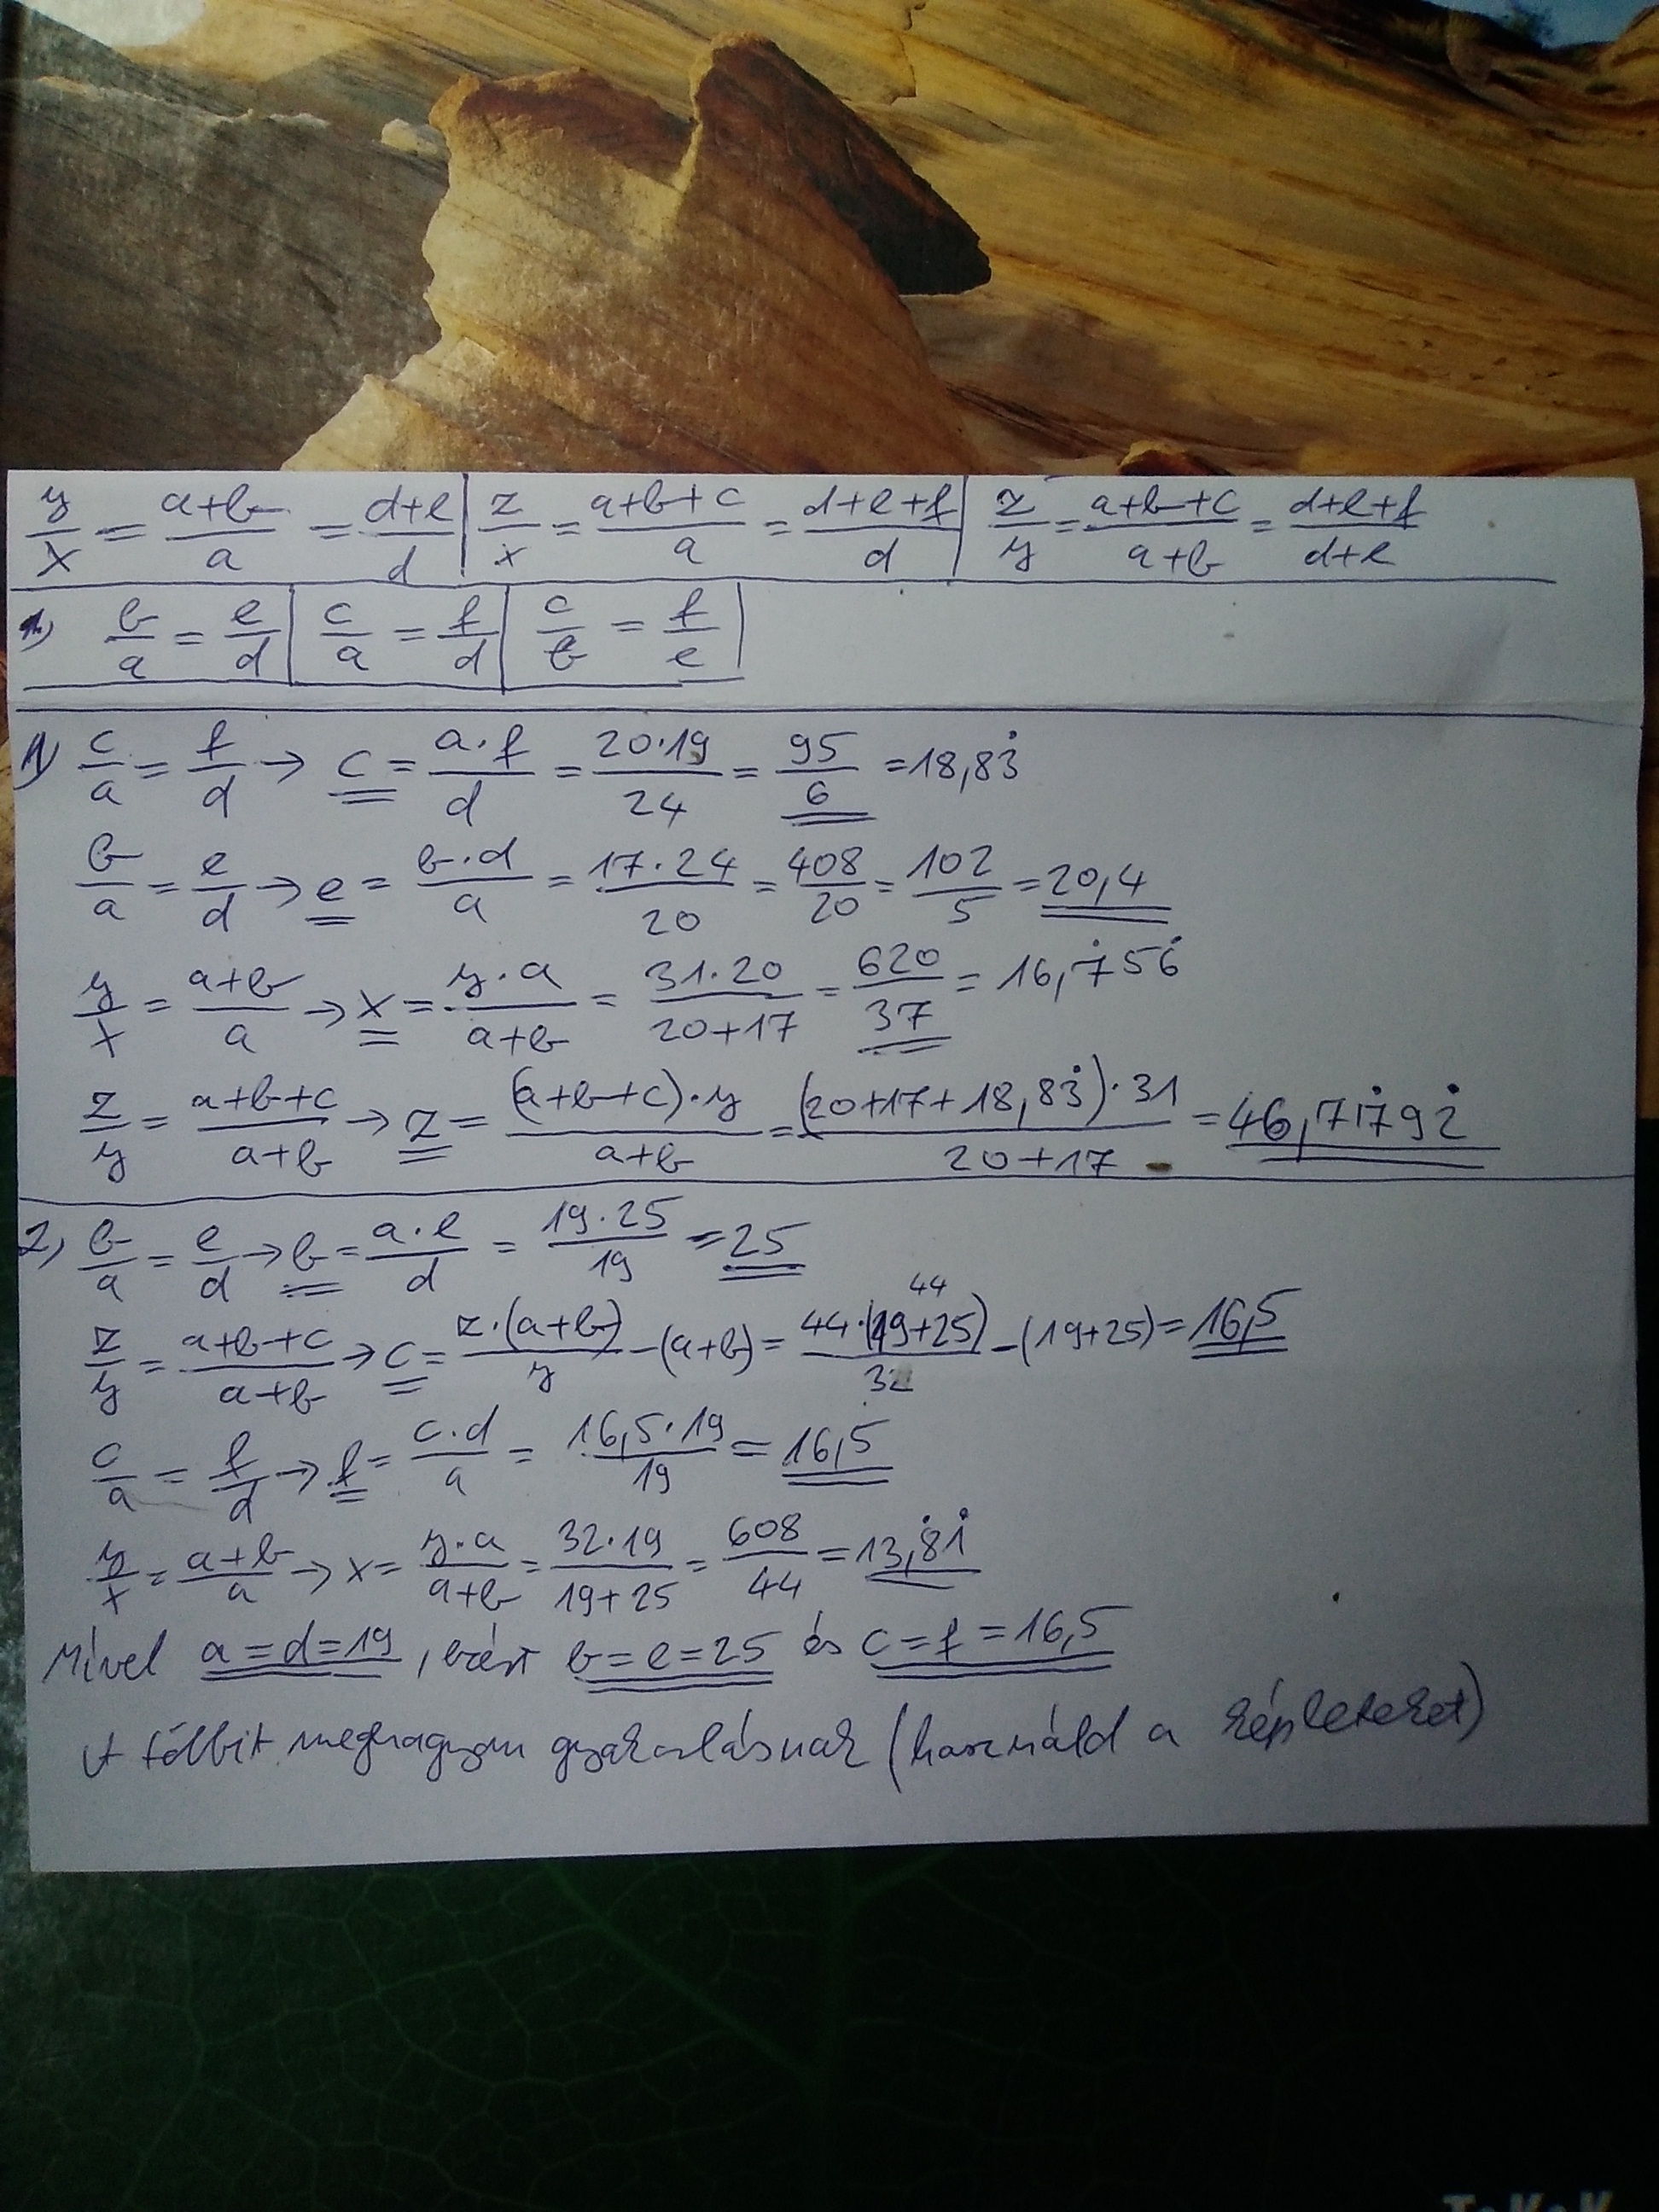 y/x = (a+b)/a = (d+e)/d | z/x = (a+b+c)/a = (d+e+f)/d | z/y = (a+b+c)/(a+b) = (d+e+f)/(d+e)
b/a = e/d | c/a = f/d | c/b = f/e |
1) c/a = f/d → c = a·f/d = 20·19/24 = 95/6 = 18,83̇
b/a = e/d → e = b·d/a = 17·24/20 = 408/20 = 102/5 = 20,4
y/x = (a+b)/a → x = y·a/(a+b) = 31·20/(20+17) = 620/37 = 16,7̇56̇
z/y = (a+b+c)/(a+b) → z = (a+b+c)·y/(a+b) = (20+17+18,83̇)·31/(20+17) = 46,717̇92̇
2, b/a = e/d → b = a·e/d = 19·25/19 = 25
44
z/y = (a+b+c)/(a+b) → c = z·(a+b)/y - (a+b) = 44·(19+25)/32 - (19+25) = 16,5
c/a = f/d → f = c·d/a = 16,5·19/19 = 16,5
y/x = (a+b)/a → x = y·a/(a+b) = 32·19/(19+25) = 608/44 = 13,8̇1̇
Mivel a=d=19, ezért b=e=25 és c=f=16,5
A többit meghagyom gyakorlásnak (használd a képleteket)